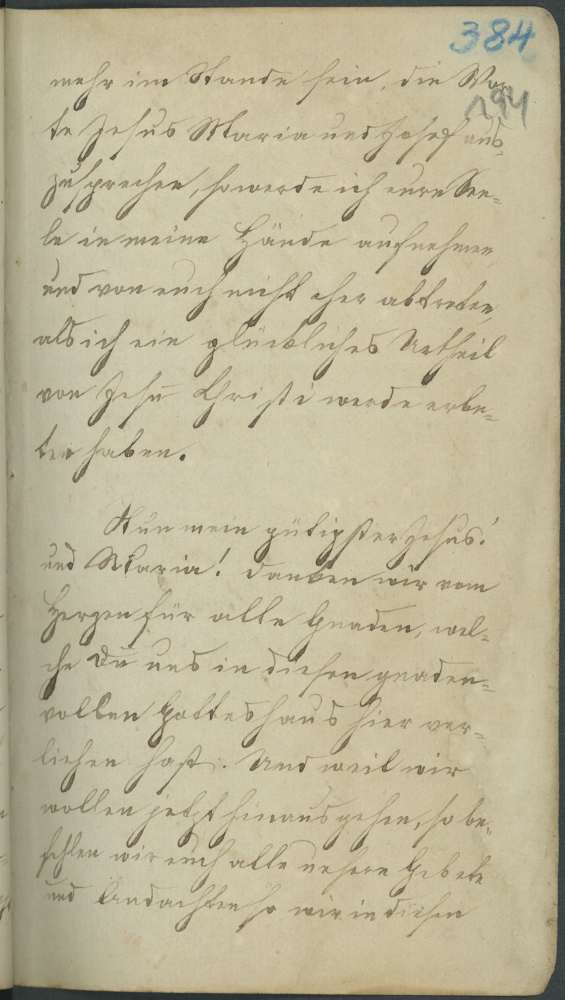 384
194
mehr im Stande sein, die Wor-
te Jesus Maria und Josef aus-
zusprechen, so werde ich eure See-
le in meine Hände aufnehmen,
und von euch nicht eher abtreten,
als ich ein glückliches Urtheil
von Jesu Christi werde erbe-
ten haben.
Nun mein gütigster Jesus!
und Maria! danken wir vom
Herzen für alle Gnaden, wel-
che Du uns in diesen gnaden-
vollen Gotteshaus hier ver-
liehen hast. Und weil wir
wollen jetzt hinausgehen, so be-
fehlen wir euch alle unsere Gebete
und Andachten so wir in diesen